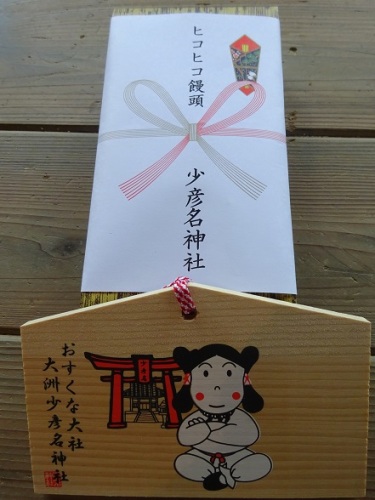 ヒコヒコ饅頭
少彦名神社
おすくな大社
大洲少彦名神社
少彦名